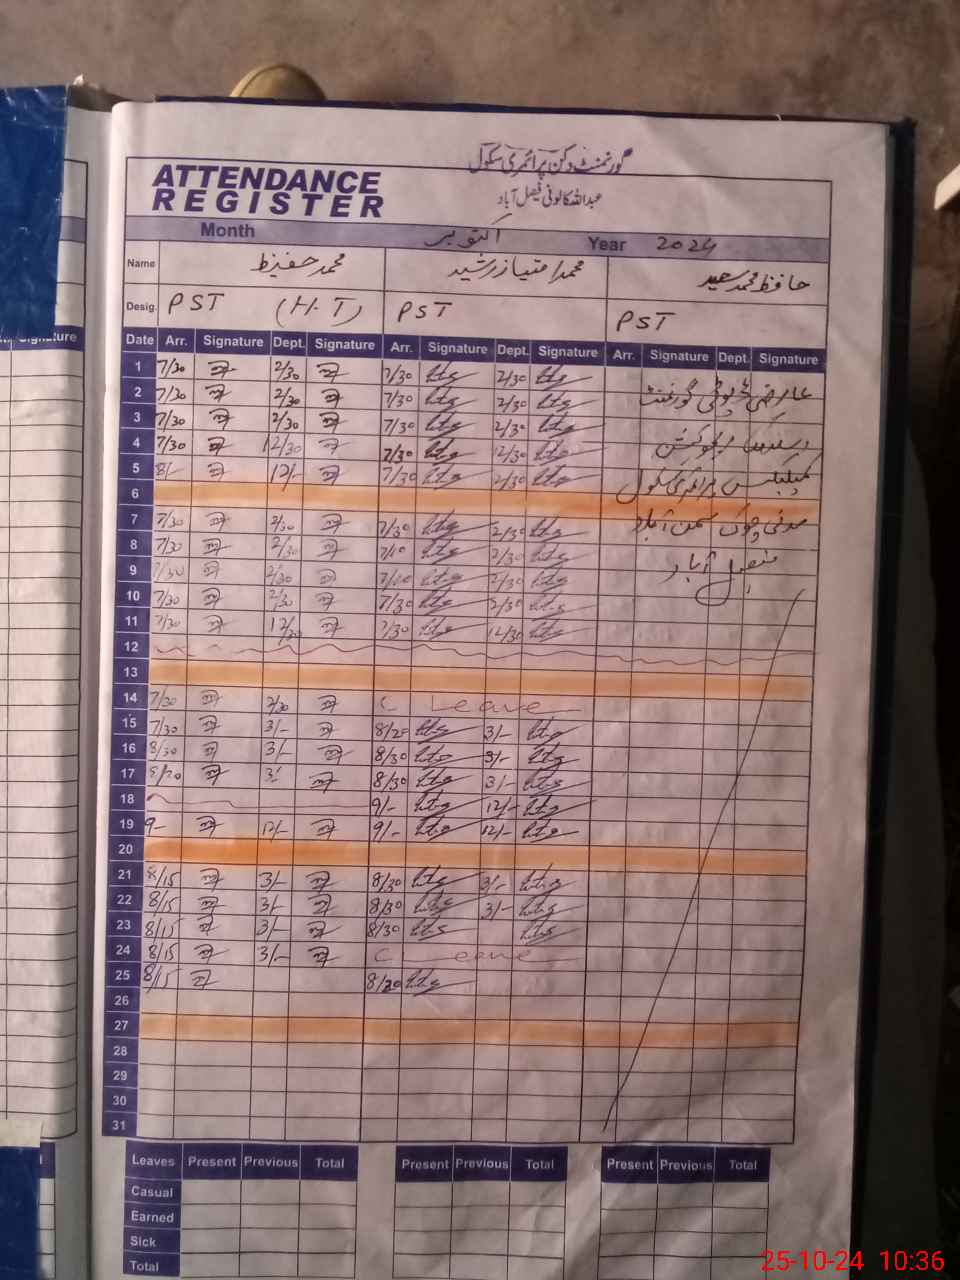 گورنمنٹ دکن پرائمری سکول
ATTENDANCE
REGISTER
عبداللہ کالونی فیصل آباد
Month اکتوبر Year 2024
Name محمد حفیظ محمد امتیاز رشید حافظ محمد سعید
Desig. PST (H.T) PST PST
Date Arr. Signature Dept. Signature Arr. Signature Dept. Signature Arr. Signature Dept. Signature
1 7/30 2/30 7/30 2/30
2 7/30 2/30 7/30 2/30 عارضی ڈیوٹی گورنمنٹ
3 7/30 2/30 7/30 2/30
4 7/30 12/30 7/30 12/30
5 8/- 12/- 7/30 2/30 پرائمری سکول
6
7 7/30 2/30 7/30 2/30 مدنی چوک سمن آباد
8 7/30 2/30 2/30
9 7/30 2/30 2/30 فیصل آباد
10 7/30 2/30 7/30 2/30
11 7/30 12/30 7/30 12/30
12
13
14 7/30 2/30 C Leave
15 7/30 3/- 8/20 3/-
16 8/30 3/- 8/30 3/-
17 8/20 3/- 8/30 3/-
18 9/- 12/-
19 9- 12/- 9/- 12/-
20
21 8/15 3/- 8/30 3/-
22 8/15 3/- 8/30 3/-
23 8/15 3/- 8/30
24 8/15 3/- C Leave
25 8/15 8/20
26
27
28
29
30
31
Leaves Present Previous Total Present Previous Total Present Previous Total
Casual
Earned
Sick
Total
25-10-24 10:36